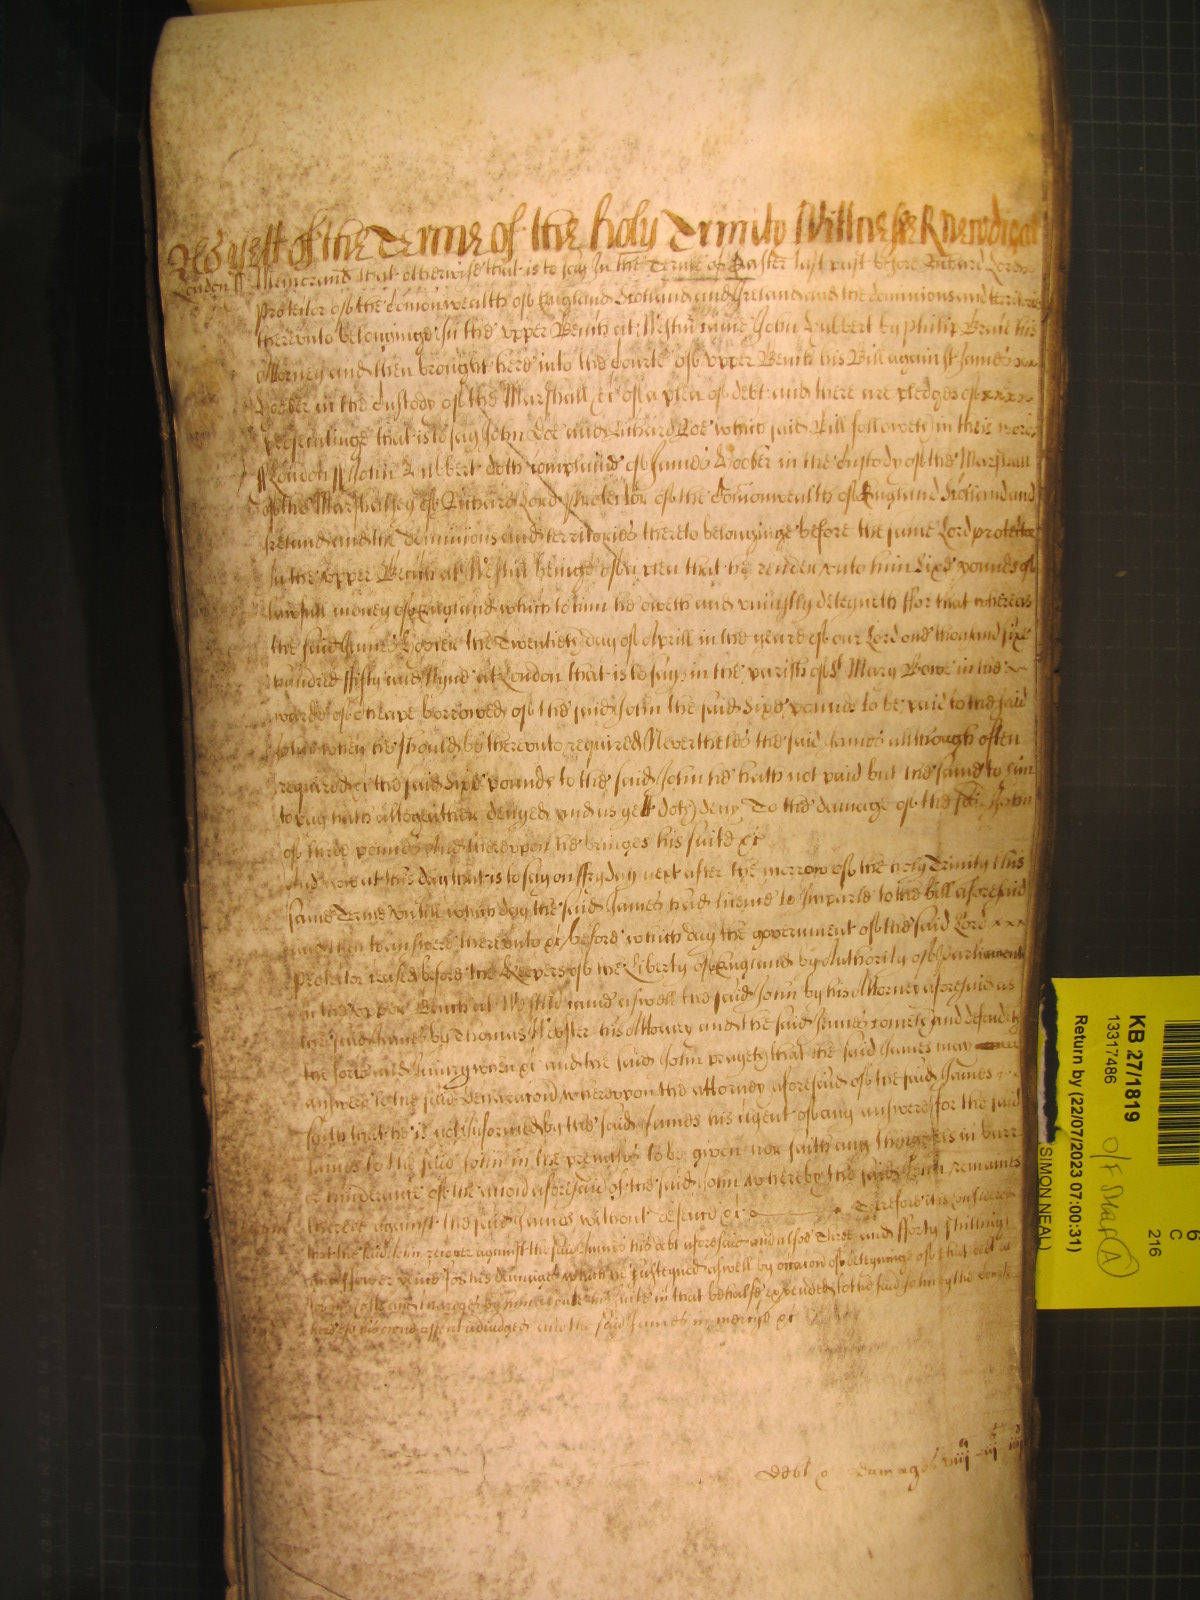 As yett of the Terme of the holy Trinity Wittnesse R Newdigat
London ss Memorand that otherwise that is to say In the Terme of Easter last past before Richard Lord
Protector of the Comonwealth of England Scotland and Ireland and the dominions and territories
thereunto belonginge In the vpper Bench at Westm came John Lubbert by Philip his
Attorney and then brought here into the Courte of vpper Bench his Bill against James
Hooker in the Custody of the Marshall &c of a plea of debt and there are pledges of
prosecutinge that is to say John Doe and Richard Roe which said Bill followeth in theis words
ss London ss John Lubbert doth complaine of James Hooker in the Custody of the Marshall
of the Marshalsey of Richard Lord Protector of the Comonwealth of England Scotland and
Ireland and the dominions and territories thereto belonginge before the same Lord protector
In the vpper Bench at Westm beinge of a plea that he render vnto him Sixe pounds of
lawfull money of England which to him he oweth and vniustly deteyneth ffor that whereas
the said James Hooker the Twentieth day of Aprill in the yeare of our Lord one thousand sixe
hundred ffifty and Nyne at London that is to say in the parish of St Mary Bowe in the
ward of Cheape borrowed of the said John the said Sixe pounds to be paid to the said
John when he should be therevnto required Nevertheles the said James although often
required &c the said Sixe pounds to the said John he hath not paid but the same to him
to pay hath altogeather denyed and as yett doth deny To the damage of the said John
of pounds And therevpon he bringes his suite &c
And now at this day that is to say on ffryday next after the morrow of the holy Trinity this
same Terme vntill which day the said James had licence to Imparle to the bill aforesaid
and then to answere therevnto &c before which day the government of the said Lord
Protector ceased before the Keepers of the Liberty of England by Authority of Parliament
in the vpper Bench at Westm came aswell the said John by his Attorney aforesaid as
the said James by Thomas Webster his Attorney and the said James cometh and defendeth
the force and Iniury when &c and the said John prayeth that the said James may
answere to the said declaracon wherevpon the attorney aforesaid of the said James
saith that he is not informed by the said James his Client of any answere for the said
James to the said John in the premises to be given nor saith any thinge els in barr
or hinderance of the accon aforesaid of the said John whereby the said John remaines
therein against the said James without defence &c Therefore it is considered
that the said John recover against the said James his debt aforesaid and alsoe Three and fforty shillings
and ffower pence for his damages which he susteyned aswell by occasion of deteyninge of that debt as
for his costs and charges by him about his suite in that behalfe expended to the said John by the Courte
here of his owne assent adiudged And the said James in mercy &c
debt damages
KB 27/1819
13317486
Return by (22/07/2023 07:00:31)
SIMON NEAL)
216
C
6
A